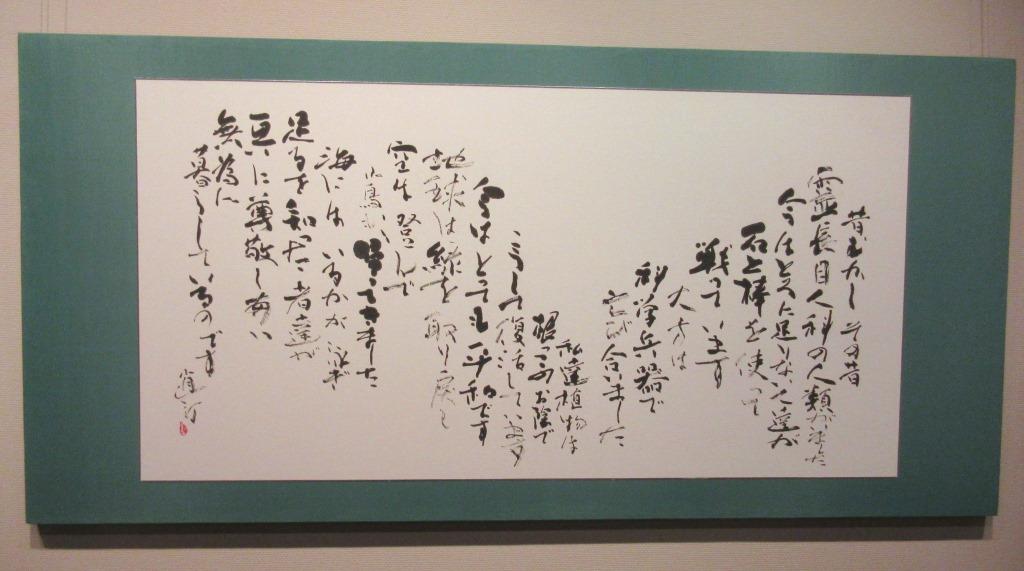 昔むかし その昔
霊長目人科の人類がいました
今はとるに足りない人達が
石と棒を使って
戦っています
大方は
科学兵器で
亡び合いました
私達植物は
根っこのお陰で
こうして復活しています
今はとっても平和です
地球は緑を取り戻し
空は澄んで
小鳥が帰ってきました
海には いるかが泳ぎ
足るを知った者達が
互いに尊敬し合い
無為に
暮らしているのです